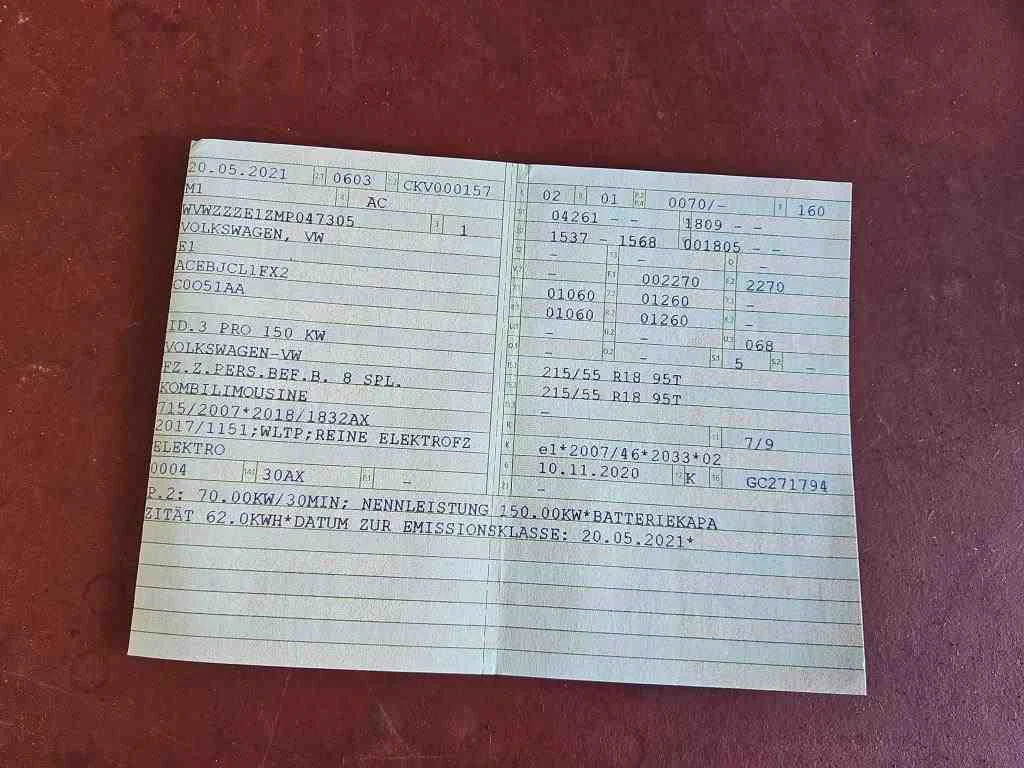 20.05.2021 0603 CKV000157
M1 AC
WVWZZZE1ZMP047305 1
VOLKSWAGEN, VW
E1
ACEBJCL1FX2
C0051AA
ID.3 PRO 150 KW
VOLKSWAGEN-VW
FZ.Z.PERS.BEF.B. 8 SPL.
KOMBILIMOUSINE
715/2007*2018/1832AX
2017/1151;WLTP;REINE ELEKTROFZ
ELEKTRO
0004 30AX P.1 –
02 01 0070/- 160
04261 - - 1809 - -
1537 - 1568 001805 - -
– – –
– 002270 2270
01060 01260 –
01060 01260 –
– – 068
– – 5 –
215/55 R18 95T
215/55 R18 95T
–
7/9
e1*2007/46*2033*02
10.11.2020 K GC271794
–
P.2: 70.00KW/30MIN; NENNLEISTUNG 150.00KW*BATTERIEKAPA
ZITÄT 62.0KWH*DATUM ZUR EMISSIONSKLASSE: 20.05.2021*